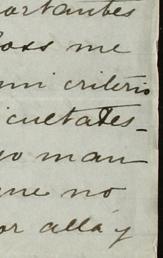 ortantes
me
mi criterio
icultades-
man
que no
or allá y